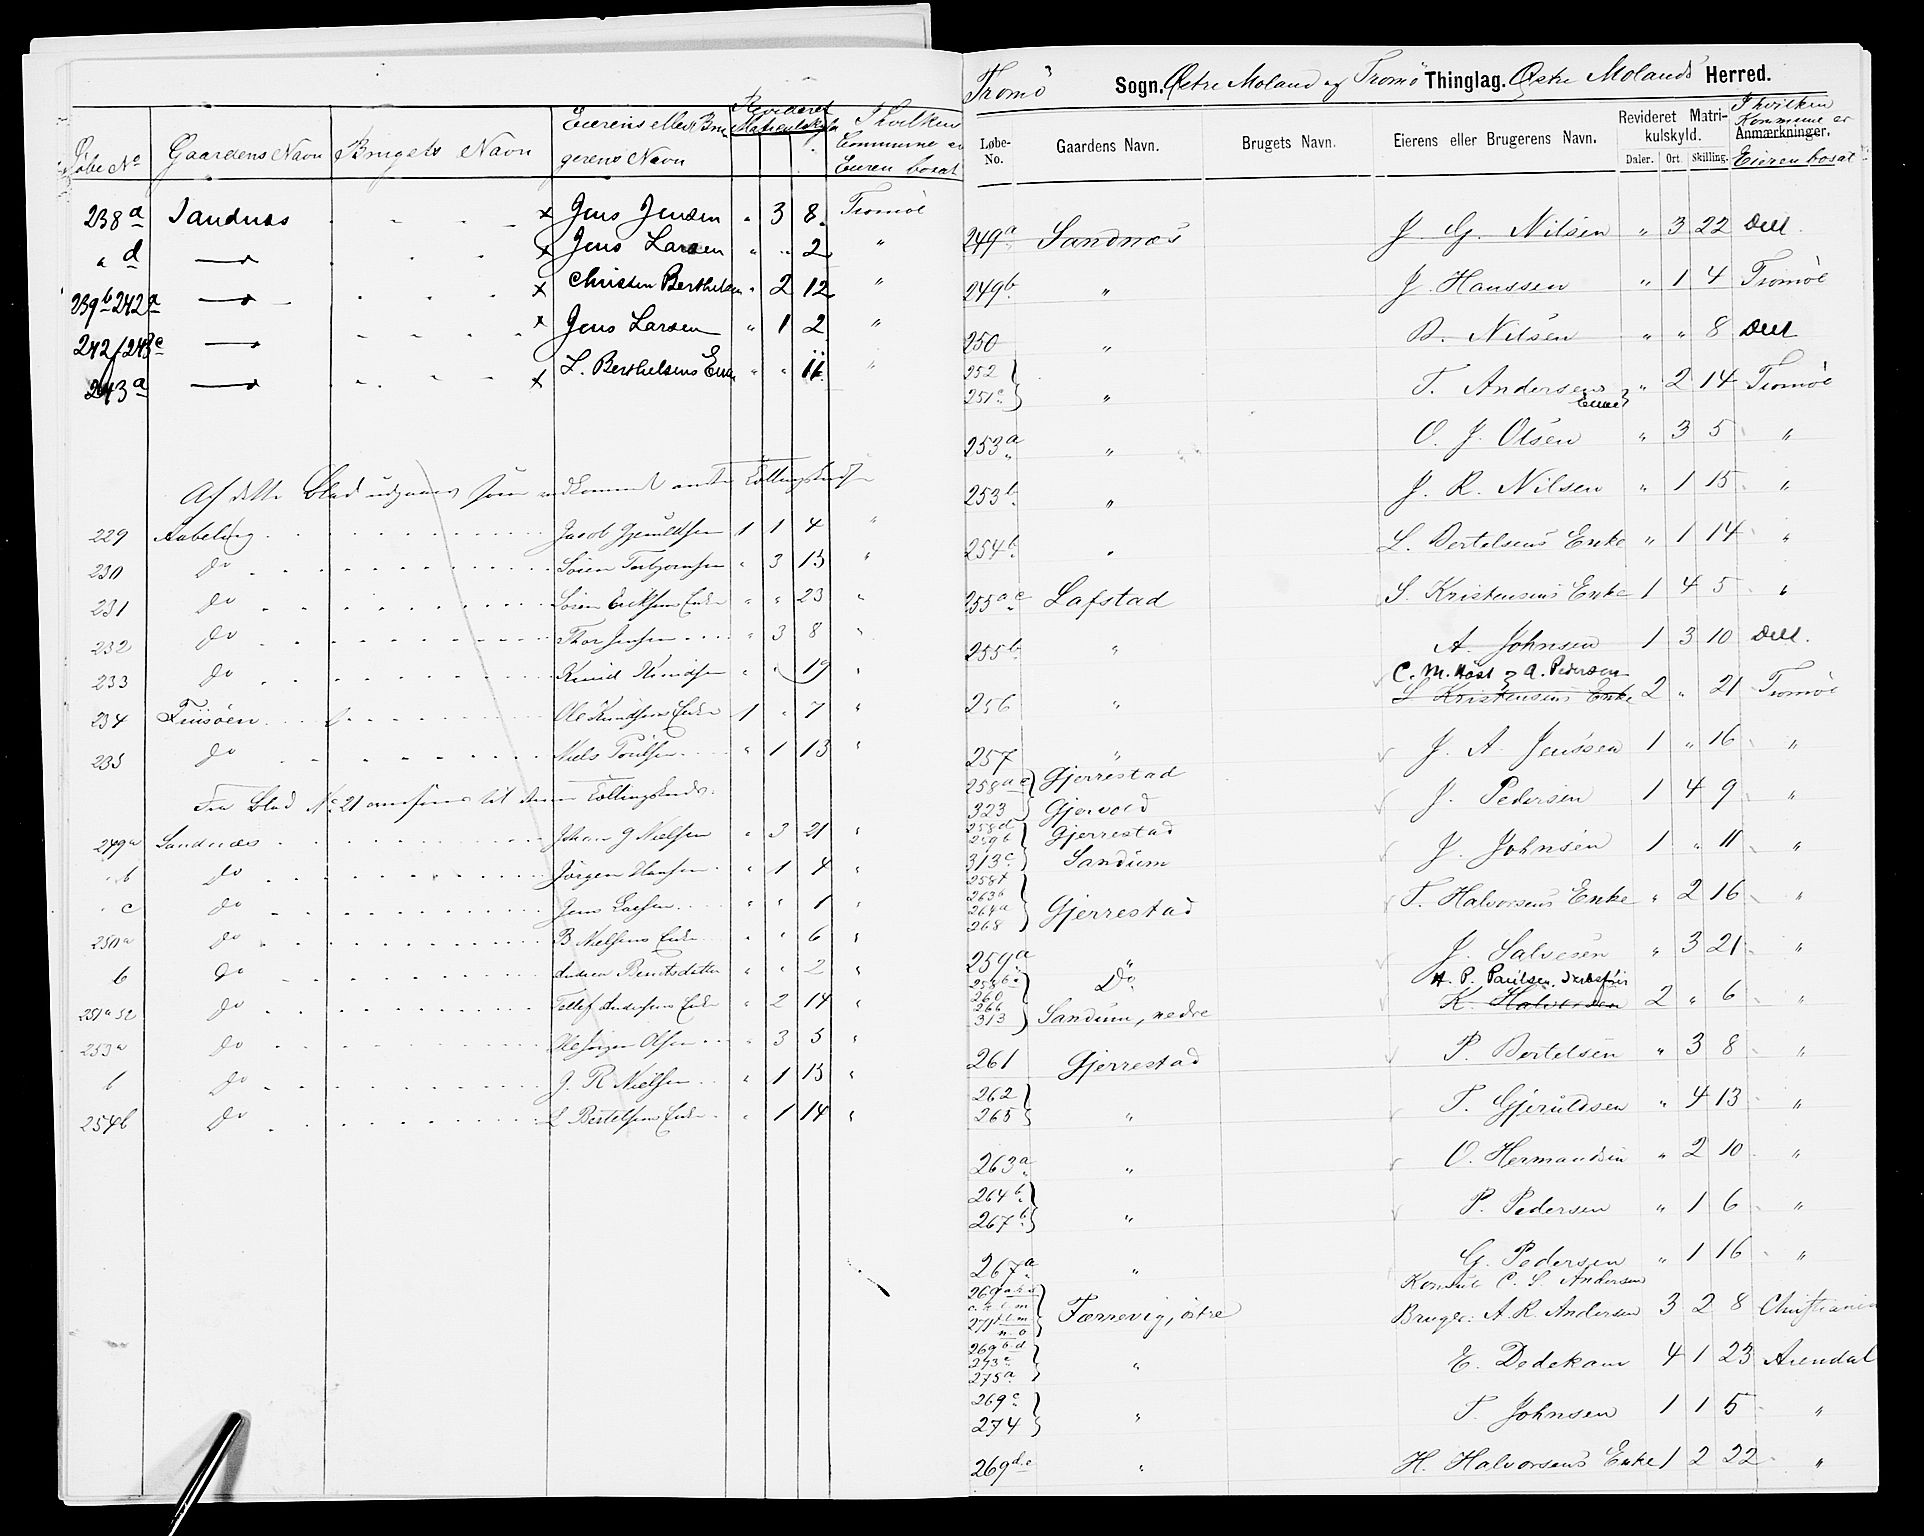 Løbe No Gaardens Navn Brugets Navn Eierens eller Bru- Revideret I hvilken
gerens Navn Matriculskyld Commune er
Eieren bosat
238a Sandnæs x Jens Jensen " 3 8 Tromøe
" d — x Jens Larsen " " 2 "
239b 242a — x Christen Berthelsen " 2 12 "
242f 243c — x Jens Larsen " 1 2 "
243a — x L. Berthelsens Enke " " 11 "
Af dette Blad udgaaer som vedkommende andre Tællingskreds
229 Aabeling Jacob Gjeruldsen 1 1 4 "
230 Do Sören Terkjornsen " 3 15 "
231 Do Sören Eriksens Enke " " 23 "
232 Do Thor Jensen " 3 8 "
233 Do Knud Knudsen " " 19 "
234 Ole Knudsens Enke 1 " 7 "
235 Do Niels Poulsen " 1 13 "
Fra Blad No 21 til denne Tællingskreds.
249a Sandnæs Johan G Nielsen " 3 21 "
" b Do Jörgen Hansen " 1 4 "
" c Do Jens Larsen " " 1 "
250a Do B Nielsens Enke " " 6 "
b Do Andrea Berntsdatter " " 2 "
251a 52 Do Tellef Andersens Enke " 2 14 "
253a Do Ole Jörgen Olsen " 3 5 "
b Do J. R Nielsen " 1 15 "
254b Do L Bertelsens Enke " 1 14 "
Tromö Sogn. Østre Moland og Tromö Thinglag. Østre Molands Herred.
Løbe-No. Gaardens Navn. Brugets Navn. Eierens eller Brugerens Navn. Revideret Matri-kulskyld. I hvilken Kommune er
Anmærkninger.
Daler. Ort. Skilling. Eieren bosat
249a Sandnæs J. G. Nilsen " 3 22 Delt.
249b " J. Hanssen " 1 4 Tromöe
250 " B. Nilsen " " 8 Delt
252
251a " T. Andersens Enke " 2 14 Tromöe
253a " O. J. Olsen " 3 5 "
253b " J. R. Nilsen " 1 15 "
254b " L. Bertelsens Enke " 1 14 "
255a c Lafstad S. Kristensens Enke 1 4 5 "
255b " A. Johnsen 1 3 10 Delt.
C. M. Höst & A. Pedersen
256 " S. Kristensens Enke 2 " 21 Tromöe
257 " J. A. Jenssen 1 " 16 "
258a e Gjerrestad
323 Gjervold J. Pedersen 1 4 9 "
258d
259b Gjerrestad
313c Sandum J. Johnsen 1 " 11 "
258f
263b
264a
268 Gjerrestad T. Halvorsens Enke " 2 16 "
259a " J. Salvesen " 3 21 "
H. P. Paulsen
258b Do
260
266
313 Sandum, nedre K. Halvorsen 2 " 6 "
261 Gjerrestad P. Bertelsen " 3 8 "
262
265 " T. Gjeruldsen " 4 13 "
263a " O. Hermandsen " 2 10 "
264b
267b " P. Pedersen " 1 6 "
267a " G. Pedersen " 1 16 "
Konsul C. S. Andersen
Færrevig, östre Bruger: A. R. Andersen 3 2 8 Christiania
269b d
273c
275a " E. Dedekam 4 1 23 Arendal
269c
274 " T. Johnsen 1 1 5 "
269d e " H. Halvorsens Enke 1 2 22 "